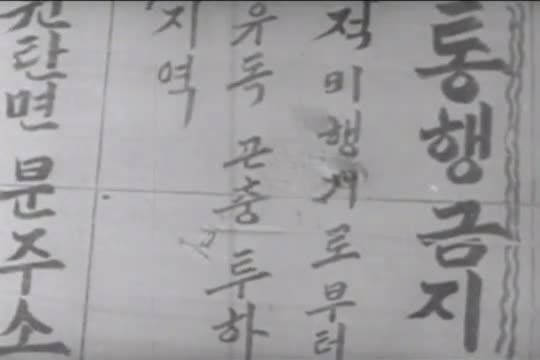 통행금지
적 비행기로부터
유독 곤충 투하
지역
분주소